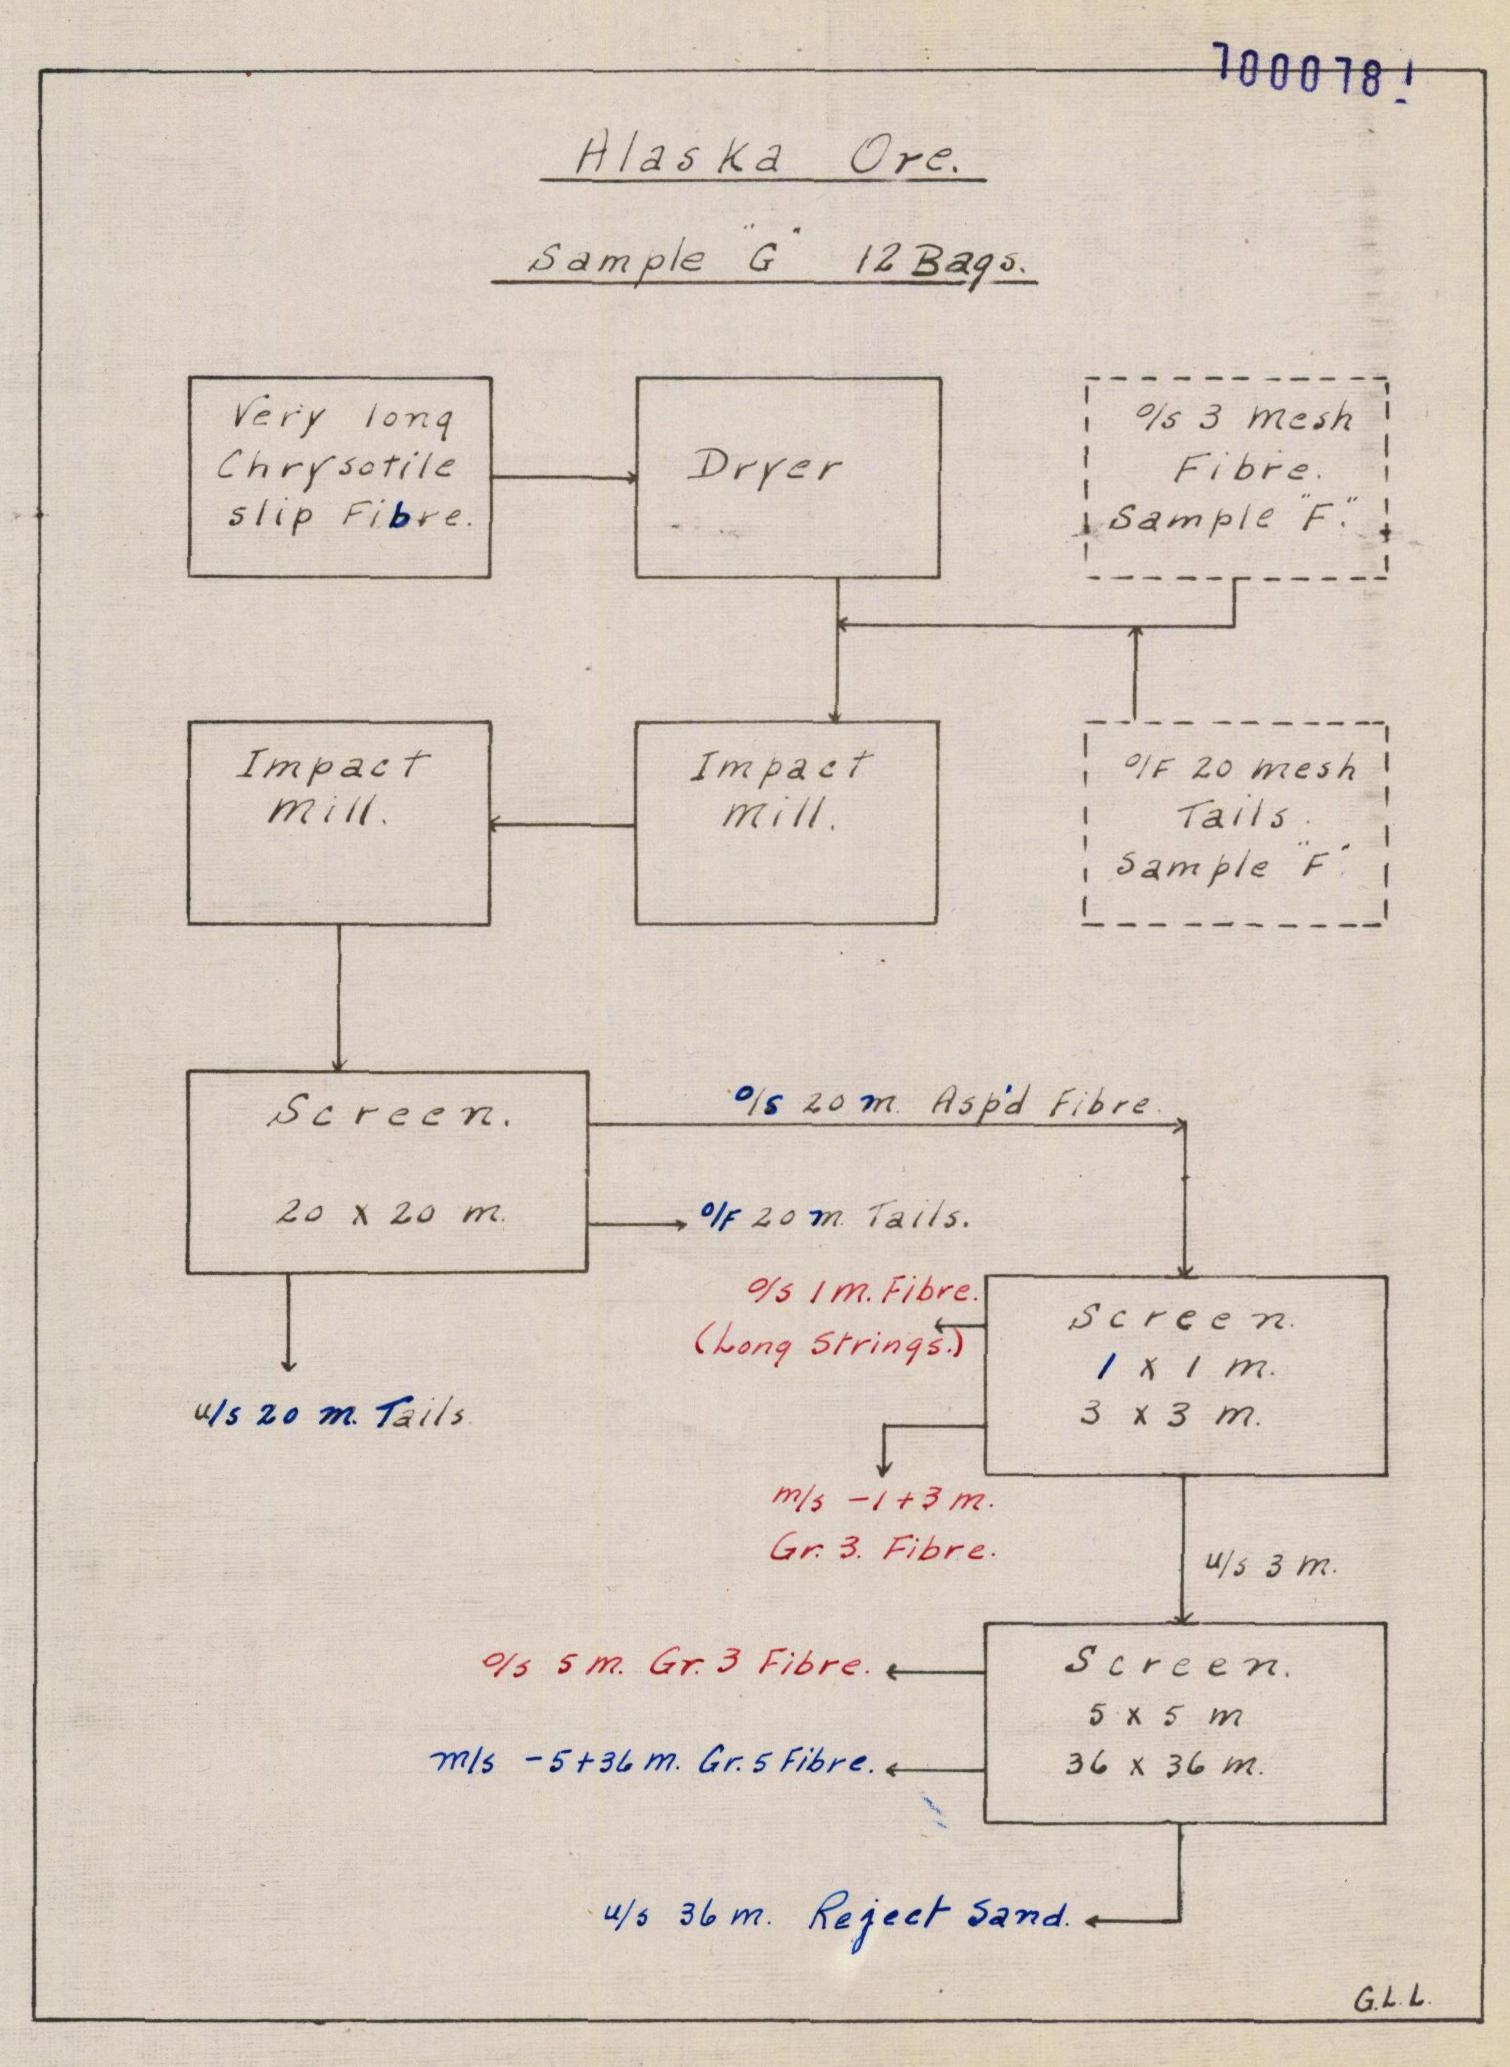 700078!
Alaska Ore.
Sample "G" 12 Bags.
Very long
Chrysotile
slip Fibre.
Dryer
o/s 3 mesh
Fibre.
Sample "F."
Impact
Mill.
Impact
Mill.
o/F 20 mesh
Tails.
Sample "F"
Screen.
20 x 20 m.
o/s 20 m. Asp'd Fibre.
o/F 20 m. Tails.
u/s 20 m. Tails.
o/s 1 m. Fibre.
(Long Strings.)
Screen.
1 x 1 m.
3 x 3 m.
m/s -1+3 m.
Gr. 3. Fibre.
u/s 3 m.
o/s 5 m. Gr. 3 Fibre.
m/s -5+36 m. Gr. 5 Fibre.
Screen.
5 x 5 m
36 x 36 m.
u/s 36 m. Reject Sand.
G.L.L.